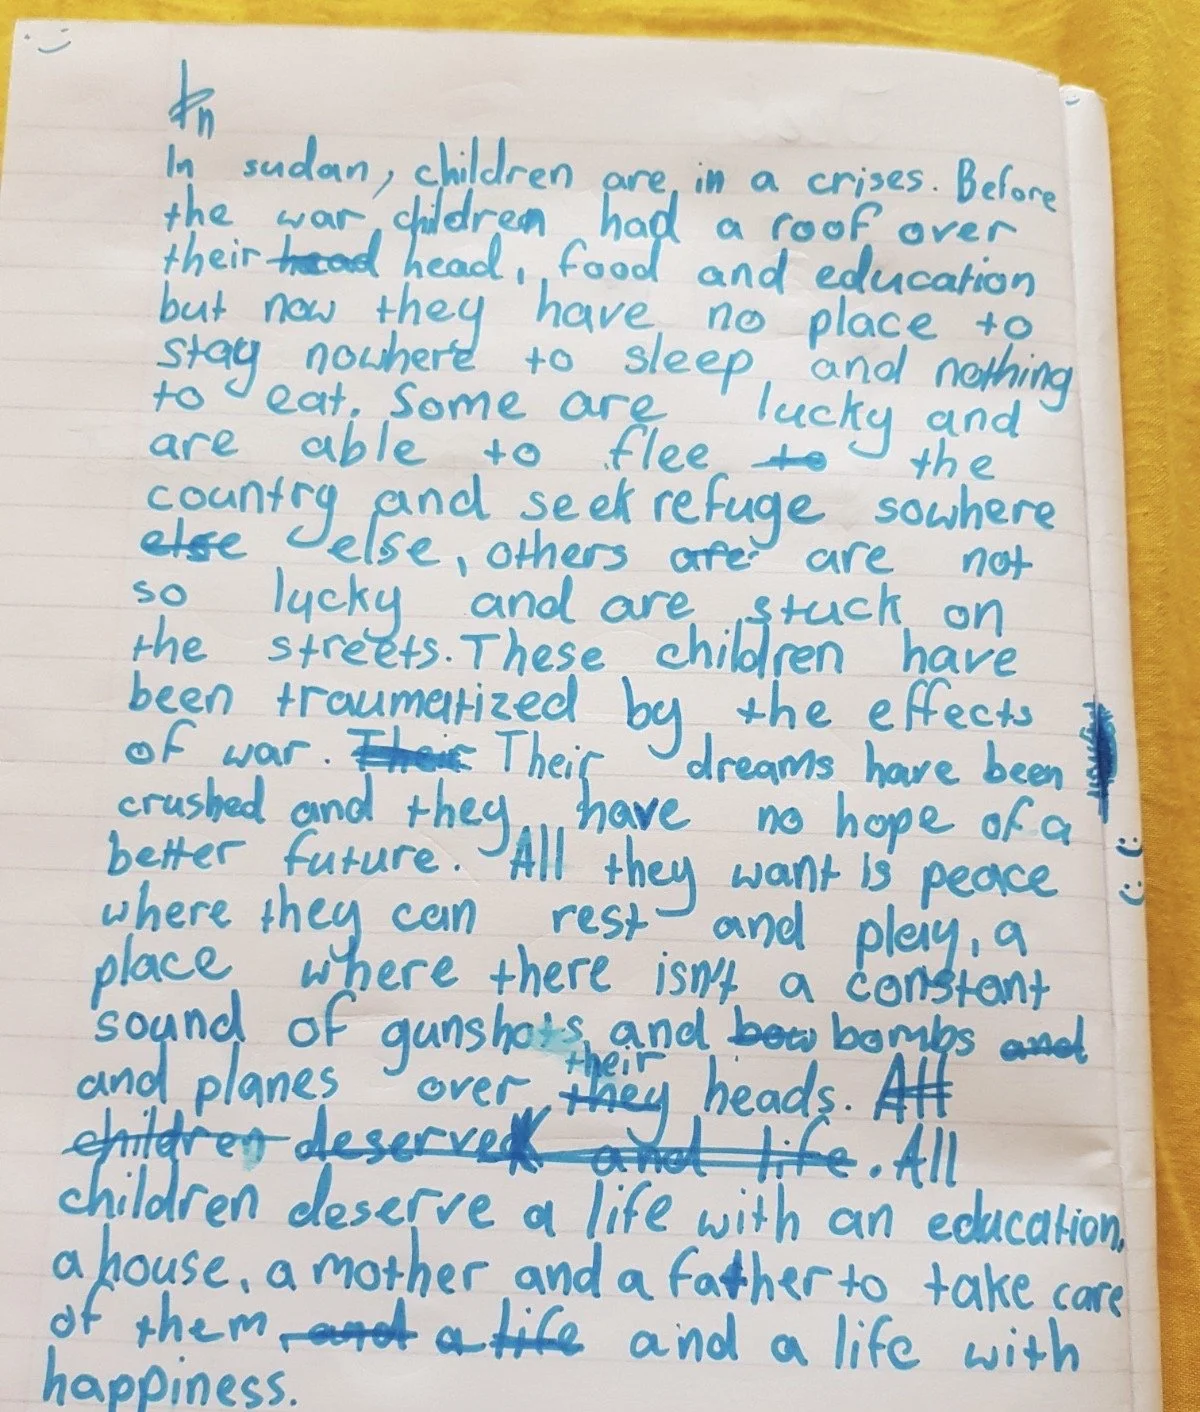 In
In sudan, children are in a crises. Before
the war children had a roof over
their head head, food and education
but now they have no place to
stay nowhere to sleep and nothing
to eat. Some are lucky and
are able to flee to the
country and seek refuge sowhere
else else, others are are not
so lucky and are stuck on
the streets. These children have
been traumatized by the effects
of war. Their Their dreams have been
crushed and they have no hope of a
better future. All they want is peace
where they can rest and play, a
place where there isn't a constant
sound of gunshots and bow bombs and
and planes over they their heads. All
children deserve and life. All
children deserve a life with an education,
a house, a mother and a father to take care
of them, and a life and a life with
happiness.